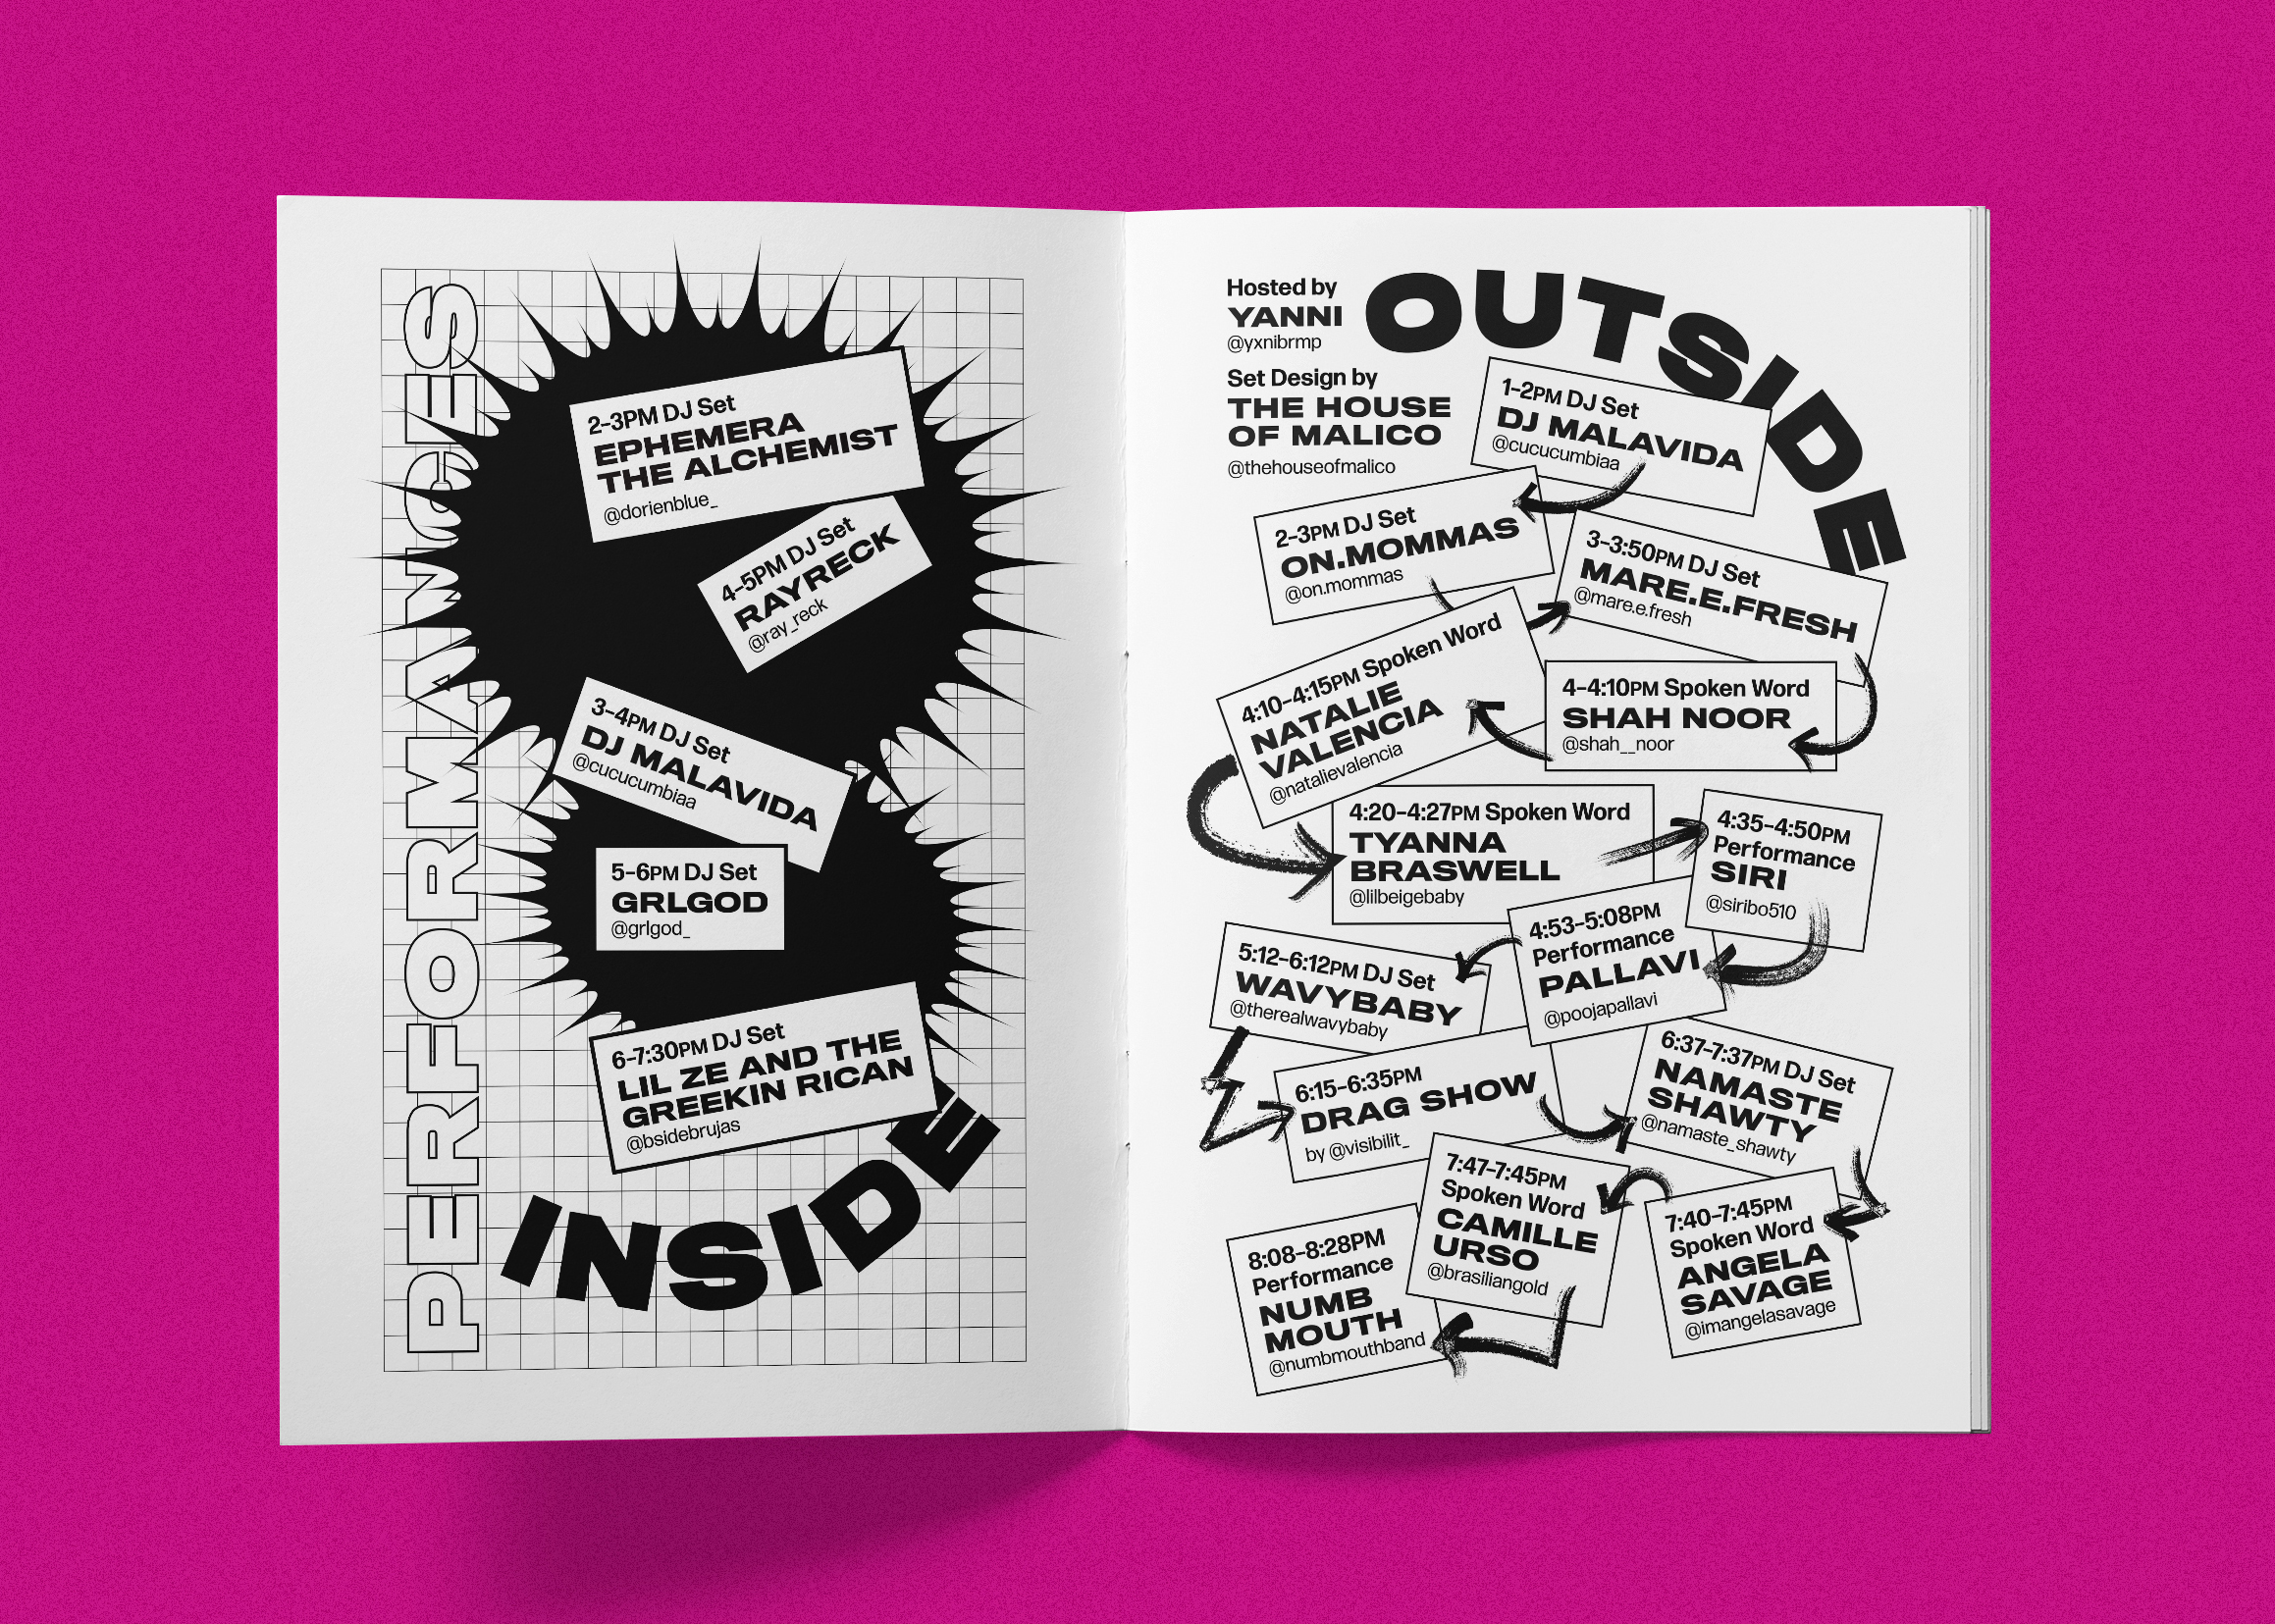 PERFORMANCES
2–3PM DJ Set
EPHEMERA
THE ALCHEMIST
@dorienblue_
4–5PM DJ Set
RAYRECK
@ray_reck
3–4PM DJ Set
DJ MALAVIDA
@cucucumbiaa
5–6PM DJ Set
GRLGOD
@grlgod_
6–7:30PM DJ Set
LIL ZE AND THE
GREEKIN RICAN
@bsidebrujas
INSIDE
Hosted by
YANNI
@yxnibrmp
Set Design by
THE HOUSE
OF MALICO
@thehouseofmalico
OUTSIDE
1–2PM DJ Set
DJ MALAVIDA
@cucucumbiaa
2–3PM DJ Set
ON.MOMMAS
@on.mommas
3–3:50PM DJ Set
MARE.E.FRESH
@mare.e.fresh
4–4:10PM Spoken Word
SHAH NOOR
@shah__noor
4:10–4:15PM Spoken Word
NATALIE
VALENCIA
@natalievalencia
4:20–4:27PM Spoken Word
TYANNA
BRASWELL
@lilbeigebaby
4:35–4:50PM
Performance
SIRI
@siribo510
4:53–5:08PM
Performance
PALLAVI
@poojapallavi
5:12–6:12PM DJ Set
WAVYBABY
@therealwavybaby
6:15–6:35PM
DRAG SHOW
by @visibilit_
6:37–7:37PM DJ Set
NAMASTE
SHAWTY
@namaste_shawty
7:40–7:45PM
Spoken Word
ANGELA
SAVAGE
@imangelasavage
7:47–7:45PM
Spoken Word
CAMILLE
URSO
@brasiliangold
8:08–8:28PM
Performance
NUMB
MOUTH
@numbmouthband